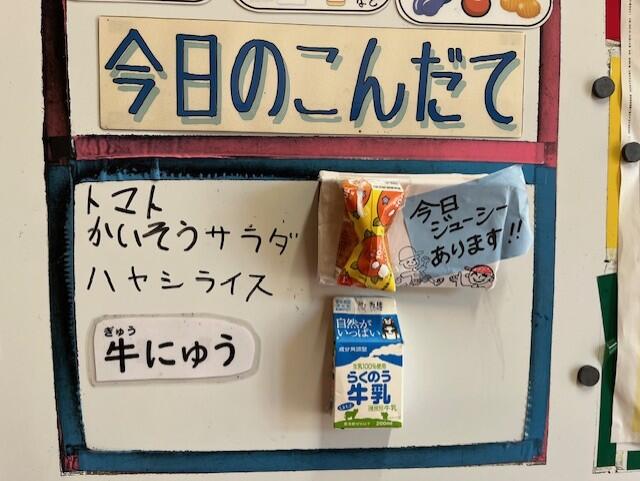 今日のこんだて
トマト
かいそうサラダ
ハヤシライス
ぎゅう
牛にゅう
今日
ジューシー
あります!!
自然が
いっぱい
成分無調整
生乳100%使用
らくのう
牛乳
200ml